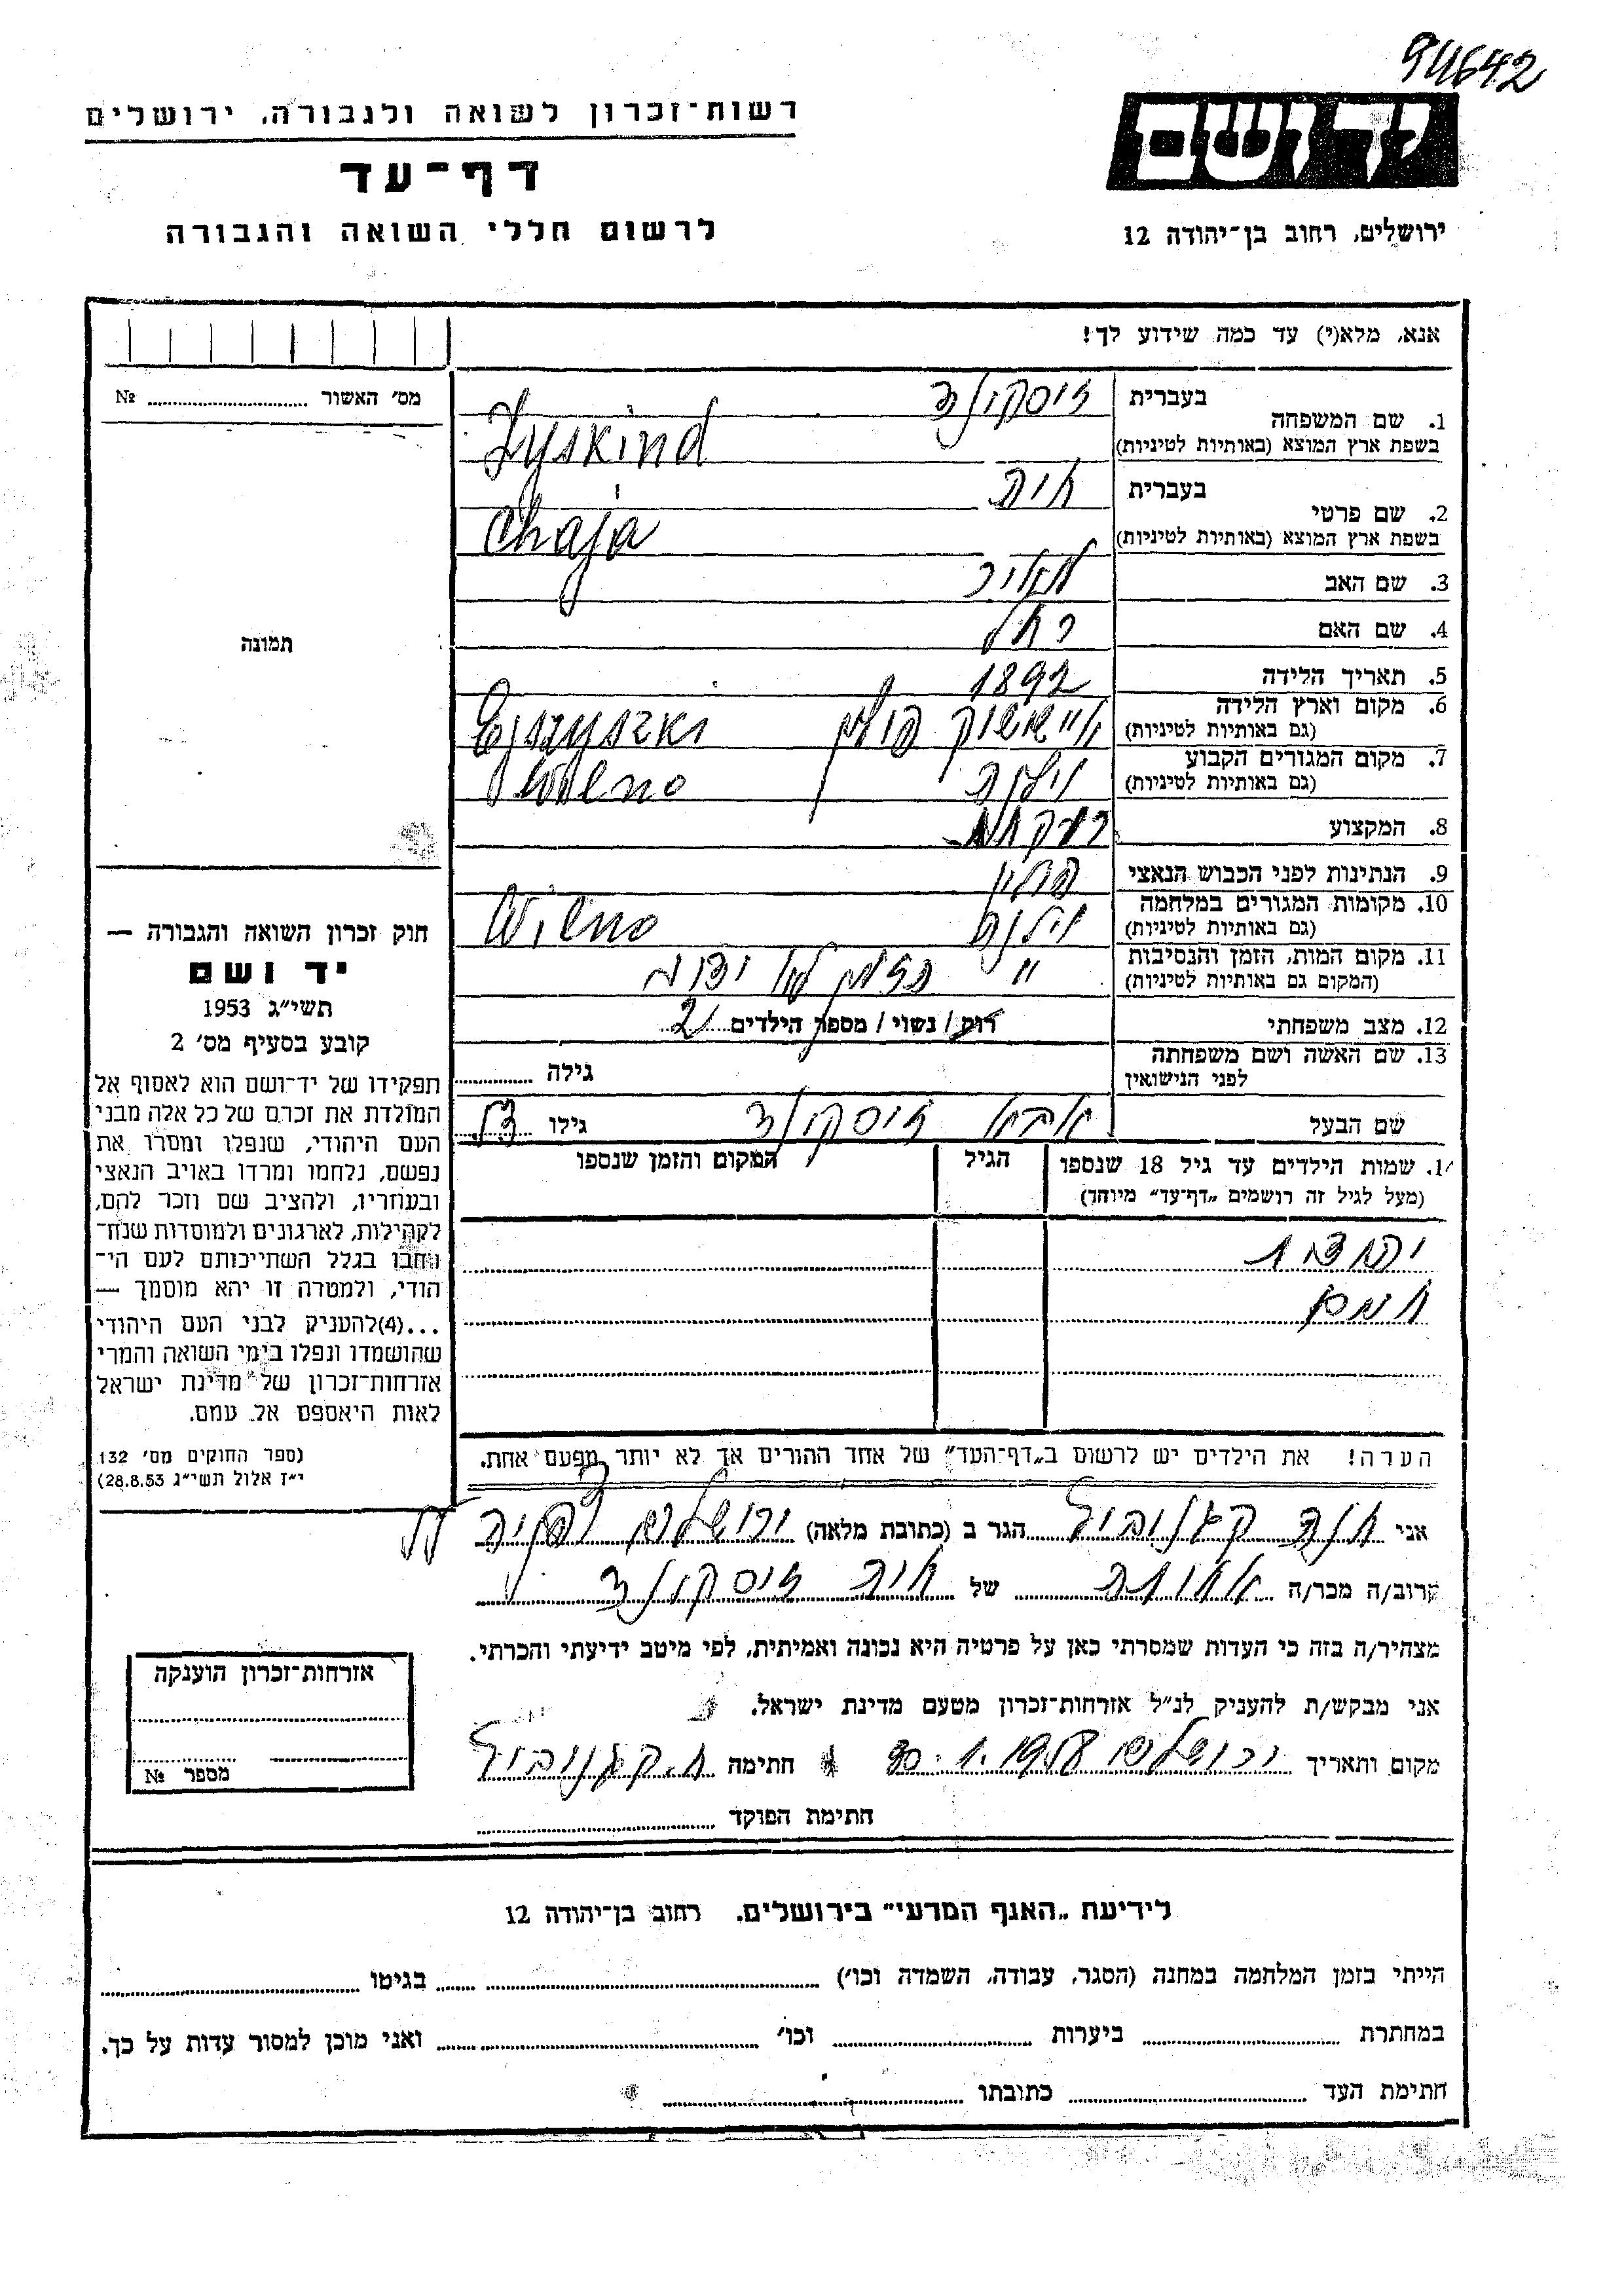 94642
רשות-זכרון לשואה ולגבורה, ירושלים
יד ושם
דף-עד
לרשום חללי השואה והגבורה
ירושלים, רחוב בן-יהודה 12
אנא, מלא(י) עד כמה שידוע לך!
מס׳ האשור № ........
1. שם המשפחה
בעברית זיסקינד
בשפת ארץ המוצא (באותיות לטיניות) Zyskind
2. שם פרטי
בעברית חיה
בשפת ארץ המוצא (באותיות לטיניות) Chaja
3. שם האב מאיר
4. שם האם רחל
5. תאריך הלידה 1892
6. מקום וארץ הלידה
(גם באותיות לטיניות) איישישוק פולין Ejszyszki
7. מקום המגורים הקבוע
(גם באותיות לטיניות) וילנה Wilno
8. המקצוע
9. הנתינות לפני הכבוש הנאצי פולין
10. מקומות המגורים במלחמה
(גם באותיות לטיניות) וילנה Wilno
11. מקום המות, הזמן והנסיבות
(המקום גם באותיות לטיניות) " הזמן לא ידוע
12. מצב משפחתי רוק / נשוי / מספר הילדים 2
13. שם האשה ושם משפחתה
לפני הנישואין גילה ........
שם הבעל אבא זיסקינד גילו
14. שמות הילדים עד גיל 18 שנספו הגיל המקום והזמן שנספו
(מעל לגיל זה רושמים „דף-עד" מיוחד)
יהודה
חמם
הערה! את הילדים יש לרשום ב„דף-העד" של אחד ההורים אך לא יותר מפעם אחת.
תמונה
חוק זכרון השואה והגבורה —
יד ושם
תשי״ג 1953
קובע בסעיף מס׳ 2
תפקידו של יד-ושם הוא לאסוף אל
המולדת את זכרם של כל אלה מבני
העם היהודי, שנפלו ומסרו את
נפשם, נלחמו ומרדו באויב הנאצי
ובעוזריו, ולהציב שם וזכר להם,
לקהילות, לארגונים ולמוסדות שנח-
רבו בגלל השתייכותם לעם הי-
הודי, ולמטרה זו יהא מוסמך —
...(4)להעניק לבני העם היהודי
שהושמדו ונפלו בימי השואה והמרי
אזרחות-זכרון של מדינת ישראל
לאות היאספם אל עמם.
(ספר החוקים מס׳ 132
י״ז אלול תשי״ג 28.8.53)
אני חנה הגר ב (כתובת מלאה) ירושלים
קרוב/ה מכר/ה אחות של חיה זיסקינד
מצהיר/ה בזה כי העדות שמסרתי כאן על פרטיה היא נכונה ואמיתית, לפי מיטב ידיעתי והכרתי.
אני מבקש/ת להעניק לנ״ל אזרחות-זכרון מטעם מדינת ישראל.
מקום ותאריך ירושלים 30.1.1958 חתימה
חתימת הפוקד ........
אזרחות-זכרון הוענקה
מספר №
לידיעת „האגף המדעי" בירושלים, רחוב בן-יהודה 12
הייתי בזמן המלחמה במחנה (הסגר, עבודה, השמדה וכו׳) ........ בגיטו ........
במחתרת ........ ביערות ........ וכו׳ ........ ואני מוכן למסור עדות על כך.
חתימת העד ........ כתובתו ........